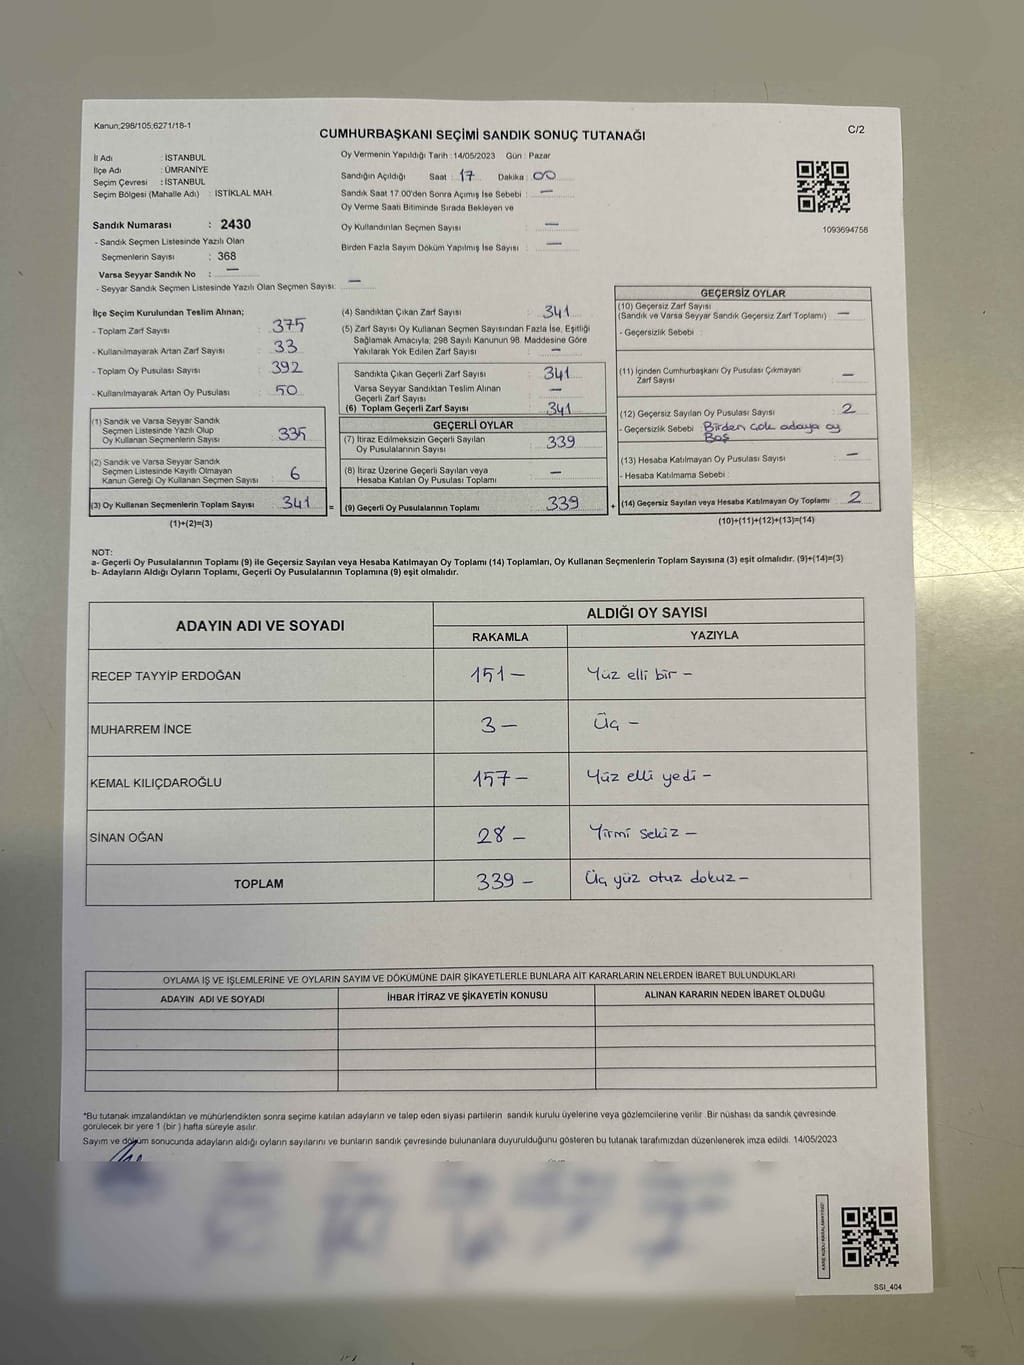 Kanun;298/105;6271/18-1
CUMHURBAŞKANI SEÇİMİ SANDIK SONUÇ TUTANAĞI
C/2
İl Adı : İSTANBUL
İlçe Adı : ÜMRANİYE
Seçim Çevresi : İSTANBUL
Seçim Bölgesi (Mahalle Adı) : İSTİKLAL MAH.
Oy Vermenin Yapıldığı Tarih : 14/05/2023 Gün : Pazar
Sandığın Açıldığı Saat : 17 Dakika : 00
Sandık Saat 17.00'den Sonra Açımış İse Sebebi : —
Oy Verme Saati Bitiminde Sırada Bekleyen ve
Oy Kullandırılan Seçmen Sayısı : —
Birden Fazla Sayım Döküm Yapılmış İse Sayısı : —
1093694756
Sandık Numarası : 2430
- Sandık Seçmen Listesinde Yazılı Olan
Seçmenlerin Sayısı : 368
Varsa Seyyar Sandık No : —
- Seyyar Sandık Seçmen Listesinde Yazılı Olan Seçmen Sayısı: —
İlçe Seçim Kurulundan Teslim Alınan;
- Toplam Zarf Sayısı : 375
- Kullanılmayarak Artan Zarf Sayısı : 33
- Toplam Oy Pusulası Sayısı : 392
- Kullanılmayarak Artan Oy Pusulası : 50
(1) Sandık ve Varsa Seyyar Sandık
Seçmen Listesinde Yazılı Olup
Oy Kullanan Seçmenlerin Sayısı : 335
(2) Sandık ve Varsa Seyyar Sandık
Seçmen Listesinde Kayıtlı Olmayan
Kanun Gereği Oy Kullanan Seçmen Sayısı : 6
(3) Oy Kullanan Seçmenlerin Toplam Sayısı : 341
(1)+(2)=(3)
(4) Sandıktan Çıkan Zarf Sayısı : 341
(5) Zarf Sayısı Oy Kullanan Seçmen Sayısından Fazla İse, Eşitliği
Sağlamak Amacıyla; 298 Sayılı Kanunun 98. Maddesine Göre
Yakılarak Yok Edilen Zarf Sayısı : —
Sandıkta Çıkan Geçerli Zarf Sayısı : 341
Varsa Seyyar Sandıktan Teslim Alınan
Geçerli Zarf Sayısı : —
(6) Toplam Geçerli Zarf Sayısı : 341
GEÇERLİ OYLAR
(7) İtiraz Edilmeksizin Geçerli Sayılan
Oy Pusulalarının Sayısı : 339
(8) İtiraz Üzerine Geçerli Sayılan veya
Hesaba Katılan Oy Pusulası Toplamı : —
= (9) Geçerli Oy Pusulalarının Toplamı : 339
GEÇERSİZ OYLAR
(10) Geçersiz Zarf Sayısı
(Sandık ve Varsa Seyyar Sandık Geçersiz Zarf Toplamı) : —
- Geçersizlik Sebebi :
(11) İçinden Cumhurbaşkanı Oy Pusulası Çıkmayan
Zarf Sayısı : —
(12) Geçersiz Sayılan Oy Pusulası Sayısı : 2
- Geçersizlik Sebebi : Birden çok adaya oy
Boş
(13) Hesaba Katılmayan Oy Pusulası Sayısı : —
- Hesaba Katılmama Sebebi :
+ (14) Geçersiz Sayılan veya Hesaba Katılmayan Oy Toplamı : 2
(10)+(11)+(12)+(13)=(14)
NOT:
a- Geçerli Oy Pusulalarının Toplamı (9) ile Geçersiz Sayılan veya Hesaba Katılmayan Oy Toplamı (14) Toplamları, Oy Kullanan Seçmenlerin Toplam Sayısına (3) eşit olmalıdır. (9)+(14)=(3)
b- Adayların Aldığı Oyların Toplamı, Geçerli Oy Pusulalarının Toplamına (9) eşit olmalıdır.
ADAYIN ADI VE SOYADI
ALDIĞI OY SAYISI
RAKAMLA YAZIYLA
RECEP TAYYİP ERDOĞAN 151— Yüz elli bir —
MUHARREM İNCE 3— Üç —
KEMAL KILIÇDAROĞLU 157— Yüz elli yedi —
SİNAN OĞAN 28— Yirmi sekiz —
TOPLAM 339— Üç yüz otuz dokuz —
OYLAMA İŞ VE İŞLEMLERİNE VE OYLARIN SAYIM VE DÖKÜMÜNE DAİR ŞİKAYETLERLE BUNLARA AİT KARARLARIN NELERDEN İBARET BULUNDUKLARI
ADAYIN ADI VE SOYADI İHBAR İTİRAZ VE ŞİKAYETİN KONUSU ALINAN KARARIN NEDEN İBARET OLDUĞU
*Bu tutanak imzalandıktan ve mühürlendikten sonra seçime katılan adayların ve talep eden siyasi partilerin sandık kurulu üyelerine veya gözlemcilerine verilir. Bir nüshası da sandık çevresinde
görülecek bir yere 1 (bir) hafta süreyle asılır.
Sayım ve döküm sonucunda adayların aldığı oyların sayılarını ve bunların sandık çevresinde bulunanlara duyurulduğunu gösteren bu tutanak tarafımızdan düzenlenerek imza edildi. 14/05/2023
SSI_404